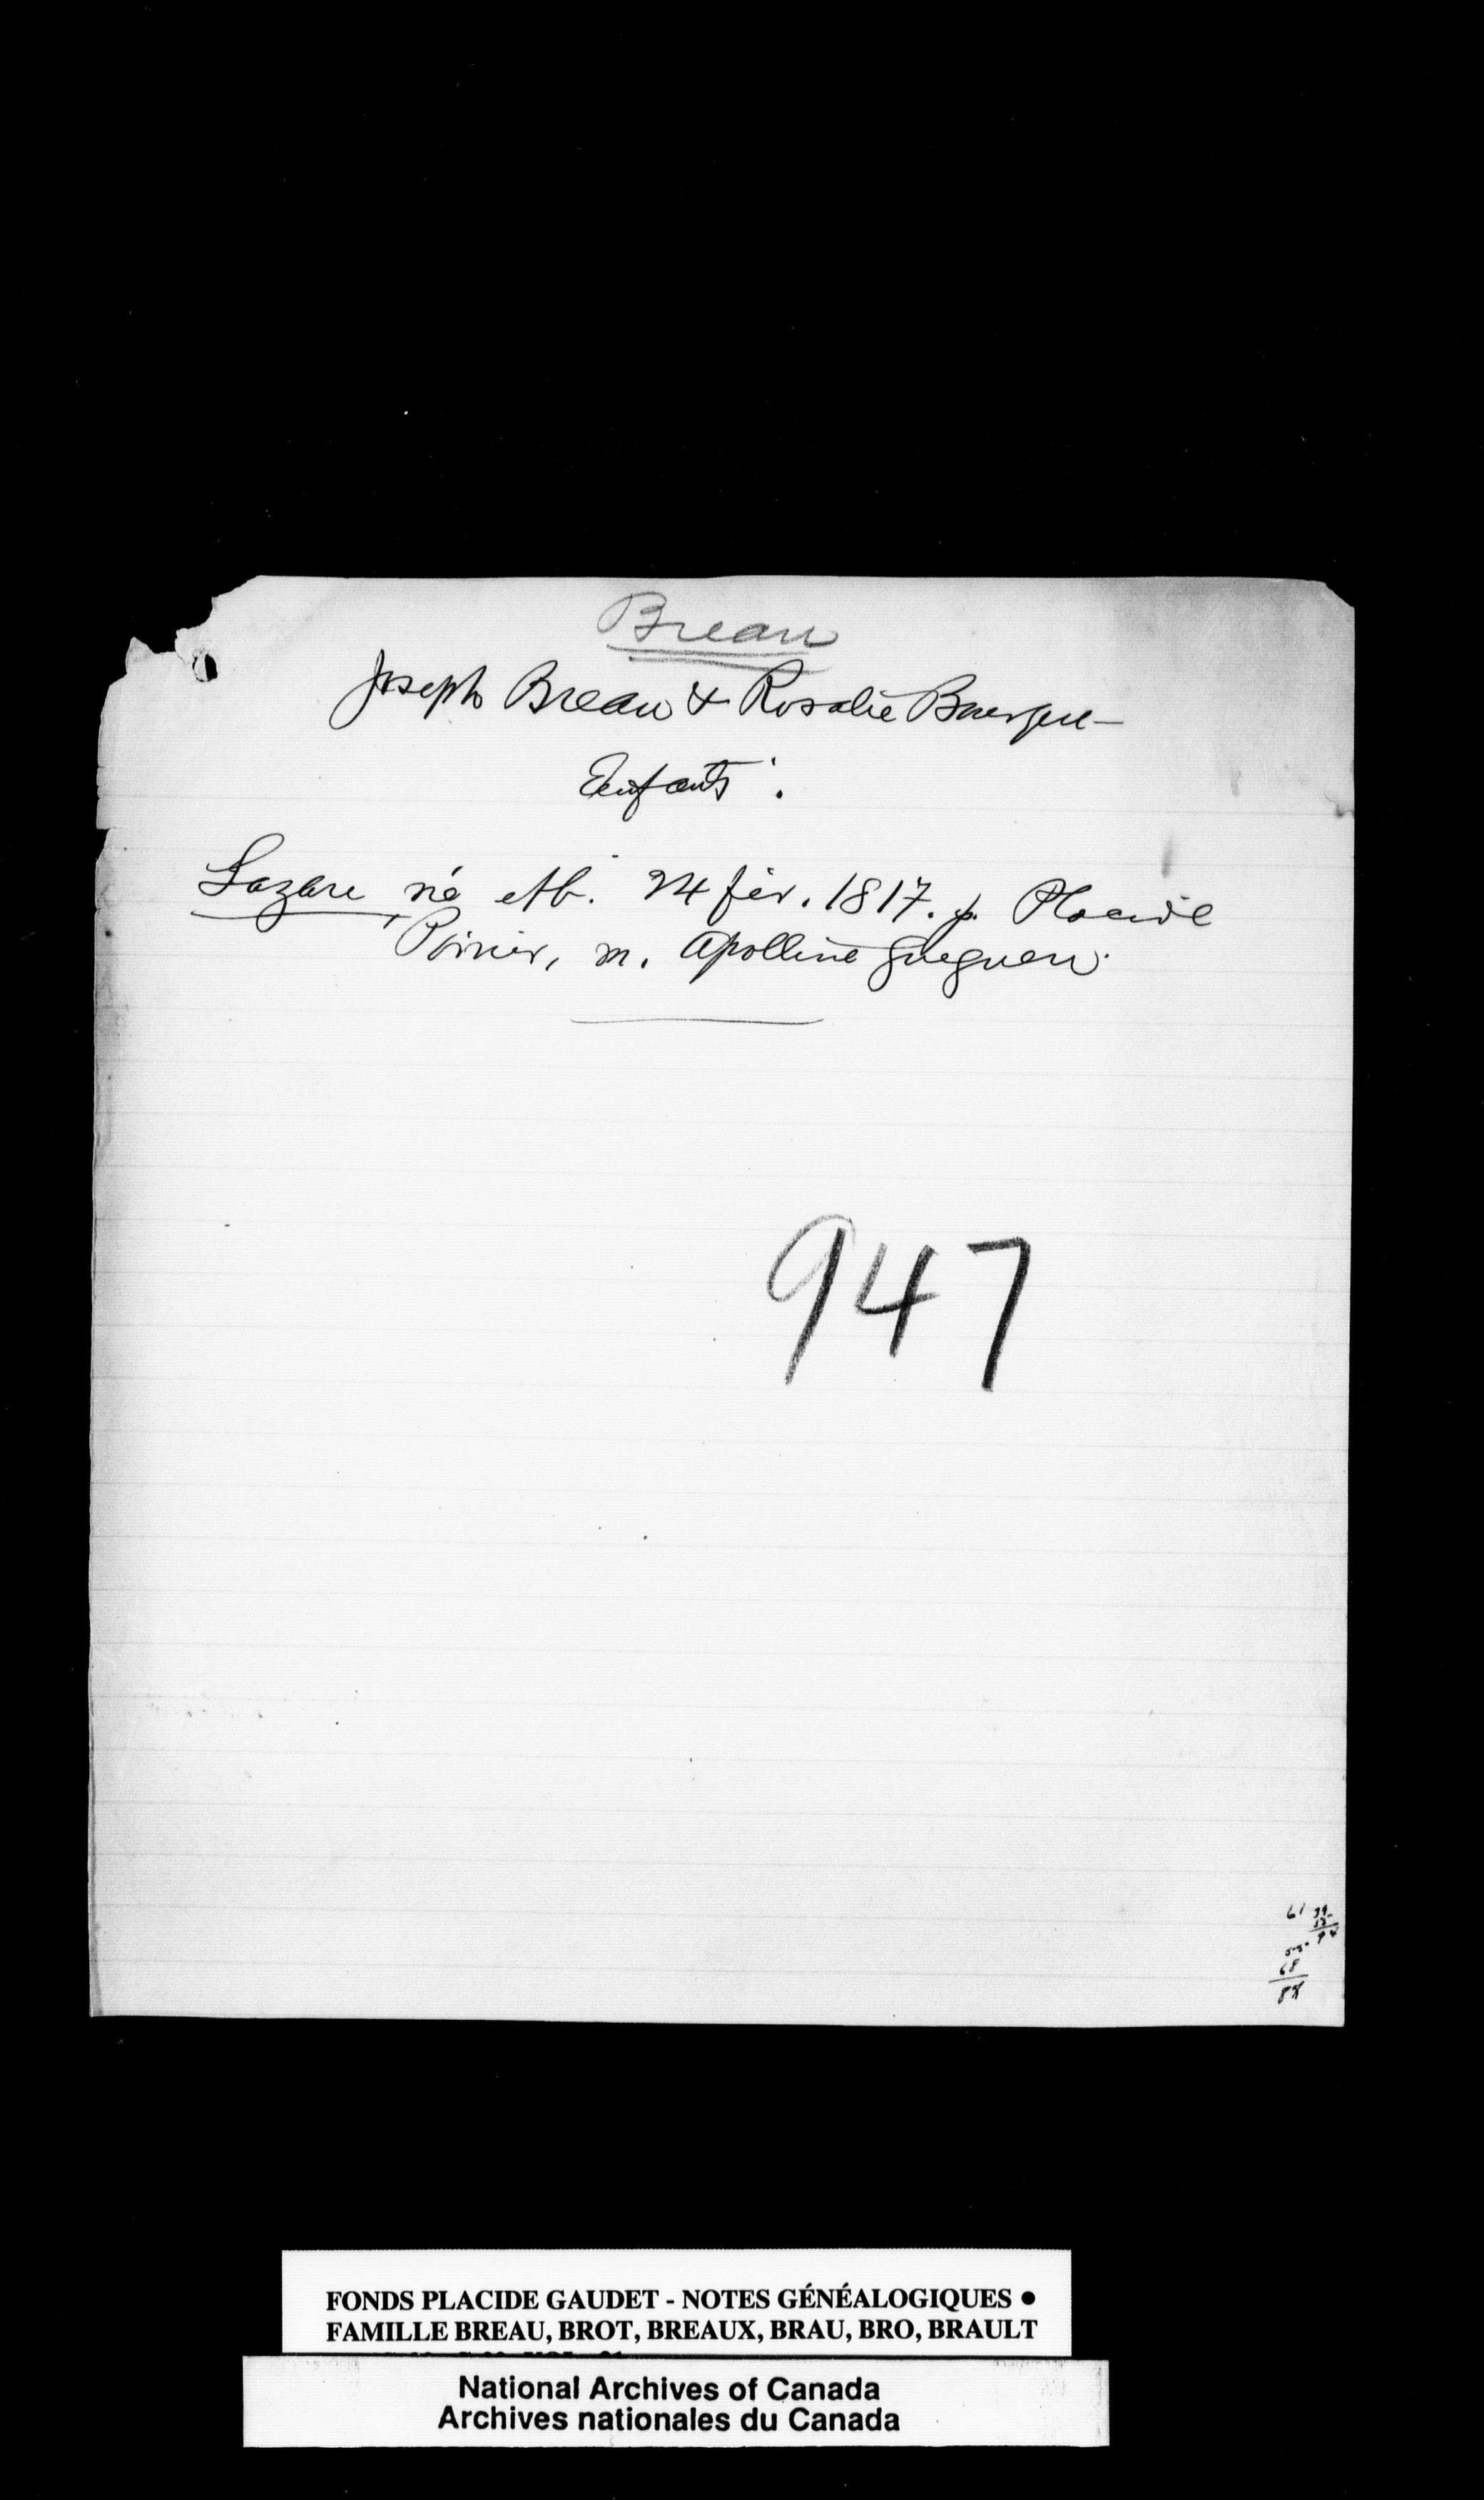 Breau
Joseph Breau & Rosalie Bourque
Enfants :
Lazare, né et b. 24 fév. 1817. p. Placide
Poirier, m. Apolline Gueguen.
947
61
68
FONDS PLACIDE GAUDET - NOTES GÉNÉALOGIQUES ●
FAMILLE BREAU, BROT, BREAUX, BRAU, BRO, BRAULT
National Archives of Canada
Archives nationales du Canada